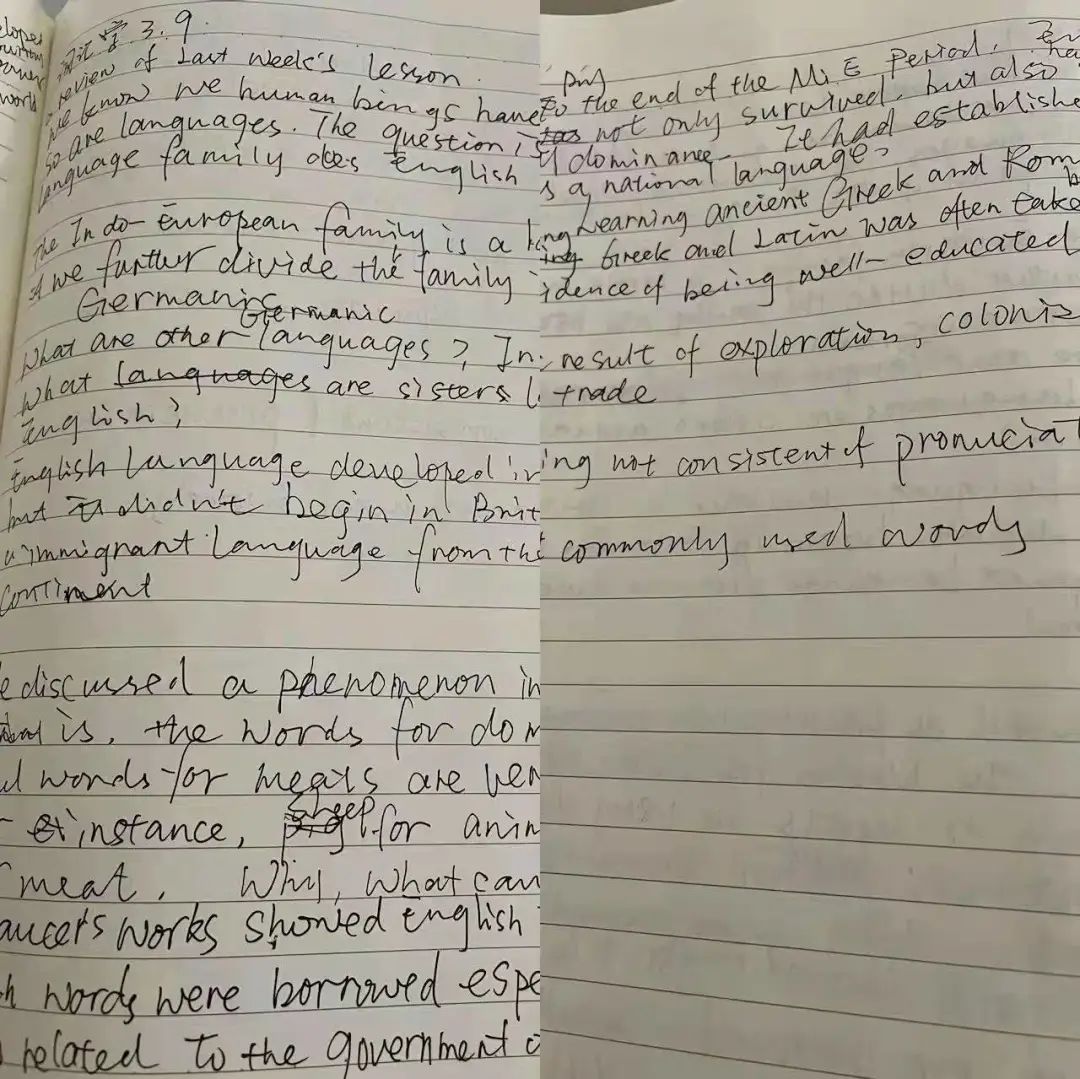 词汇学 3.9.
review of last week's lesson.
we know we human bings have
so are languages. The question is
language family does English
The Indo-European family is a
If we further divide the family
Germanic
Germanic
What are other languages?
What languages are sisters
English?
English language developed in
but didn't begin in Brit
immigrant language from the
contiment
e discussed a phenomenon in
is, the words for dom
words for meats are ver
instance, sheep for anim
meat. Why, what can
aucer's works showed English
h words were borrowed espe
related to the government o
to the end of the Mi E Period. En
not only survived, but also ha
dominance. It had establishe
s a national language?
Learning ancient Greek and Rom
Greek and Latin was often take
idence of being well-educated
result of exploration, coloniz
trade
ing not consistent of pronuciat
commonly used words